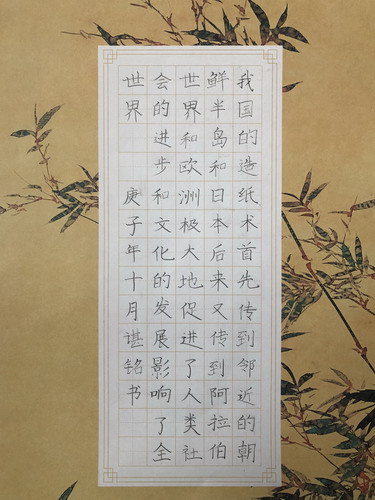 我国的造纸术首先传到邻近的朝
鲜半岛和日本后来又传到阿拉伯
世界和欧洲极大地促进了人类社
会的进步和文化的发展影响了全
世界 庚子年十月谌铭书